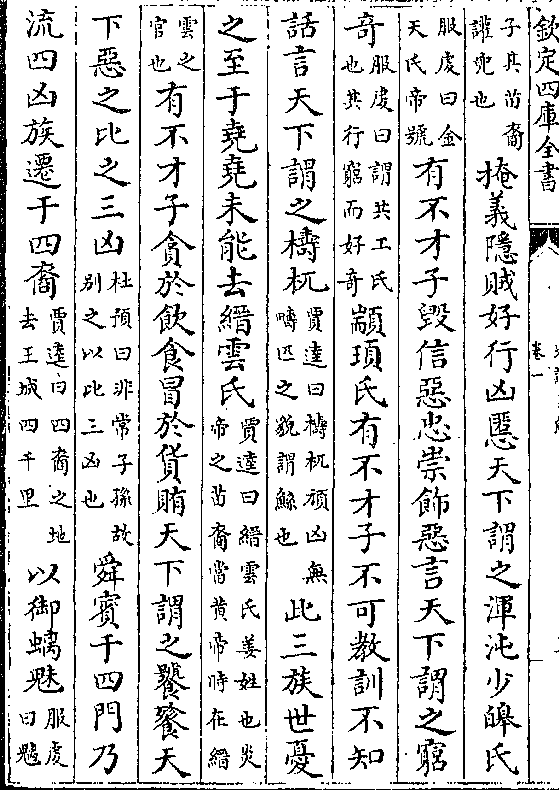 欽定四庫全書
卷一
子其苗裔讙兜也掩義隱賊好行凶慝天下謂之渾沌少皥氏
服虔曰金天氏帝號有不才子毀信惡忠崇飾惡言天下謂之窮
奇服虔曰謂共工氏也其行窮而好奇顓頊氏有不才子不可教訓不知
話言天下謂之檮杌賈逵曰檮杌頑凶無疇匹之貌謂鯀也此三族世憂
之至于堯堯未能去縉雲氏賈逵曰縉雲氏姜姓也炎帝之苗裔當黃帝時在縉
雲之官也有不才子貪於飲食冒於貨賄天下謂之饕餮天
下惡之比之三凶杜預曰非常子孫故別之以比三凶也舜賓于四門乃
流四凶族遷于四裔賈逵曰四裔之地去王城四千里以御螭魅服虔曰魑